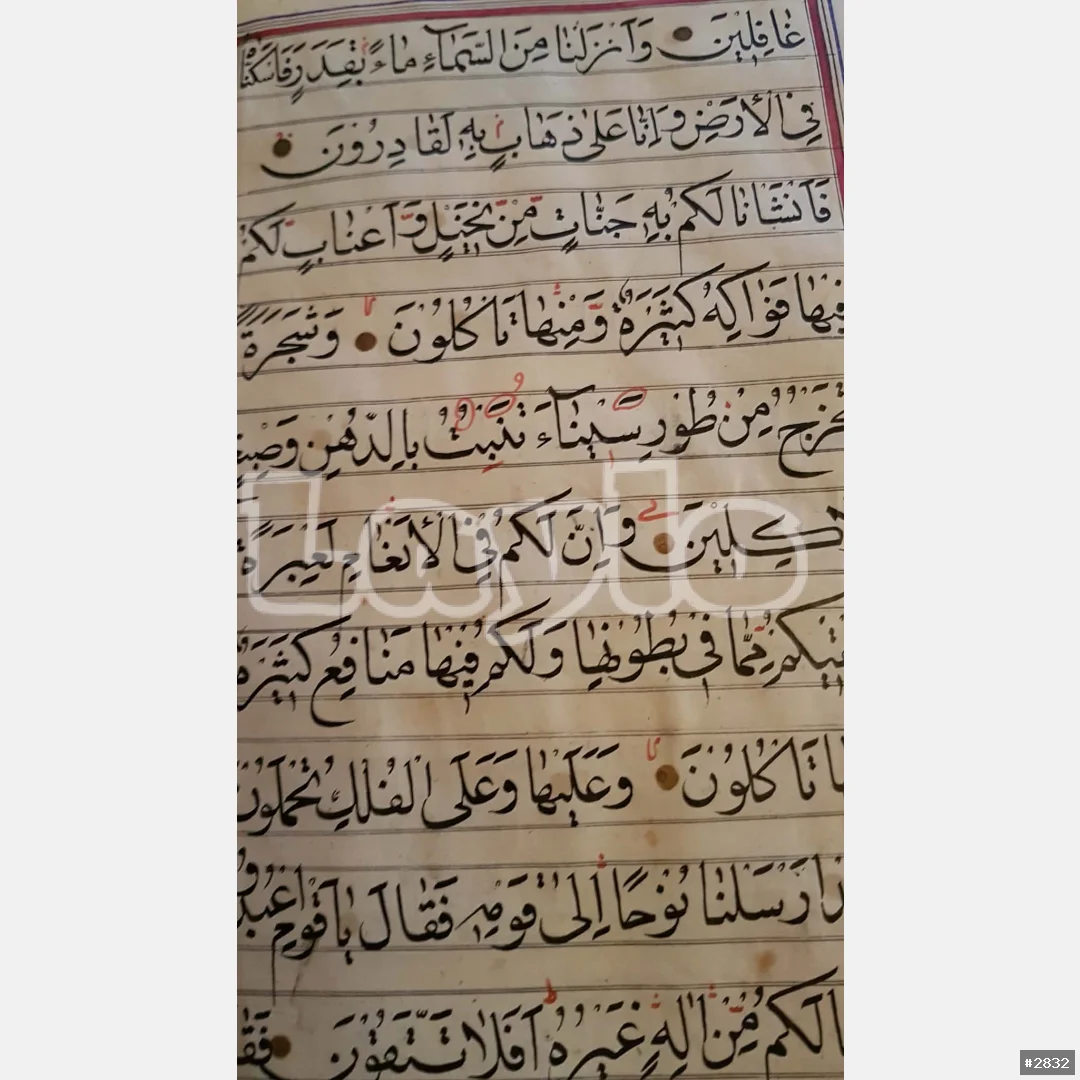 غَافِلِينَ ● وَأَنْزَلْنَا مِنَ السَّمَاءِ مَاءً بِقَدَرٍ فَأَسْكَنَّا
فِي الْأَرْضِ وَإِنَّا عَلَىٰ ذَهَابٍ بِهِ لَقَادِرُونَ ●
فَأَنْشَأْنَا لَكُمْ بِهِ جَنَّاتٍ مِنْ نَخِيلٍ وَأَعْنَابٍ لَكُمْ
فِيهَا فَوَاكِهُ كَثِيرَةٌ وَمِنْهَا تَأْكُلُونَ ● وَشَجَرَةً
تَخْرُجُ مِنْ طُورِ سَيْنَاءَ تَنْبُتُ بِالدُّهْنِ وَصِبْغٍ
لِلْآكِلِينَ ● وَإِنَّ لَكُمْ فِي الْأَنْعَامِ لَعِبْرَةً
نُسْقِيكُمْ مِمَّا فِي بُطُونِهَا وَلَكُمْ فِيهَا مَنَافِعُ كَثِيرَةٌ
تَأْكُلُونَ ● وَعَلَيْهَا وَعَلَى الْفُلْكِ تُحْمَلُونَ
أَرْسَلْنَا نُوحًا إِلَىٰ قَوْمِهِ فَقَالَ يَا قَوْمِ اعْبُدُوا
مَا لَكُمْ مِنْ إِلَٰهٍ غَيْرُهُ أَفَلَا تَتَّقُونَ ●
#2832